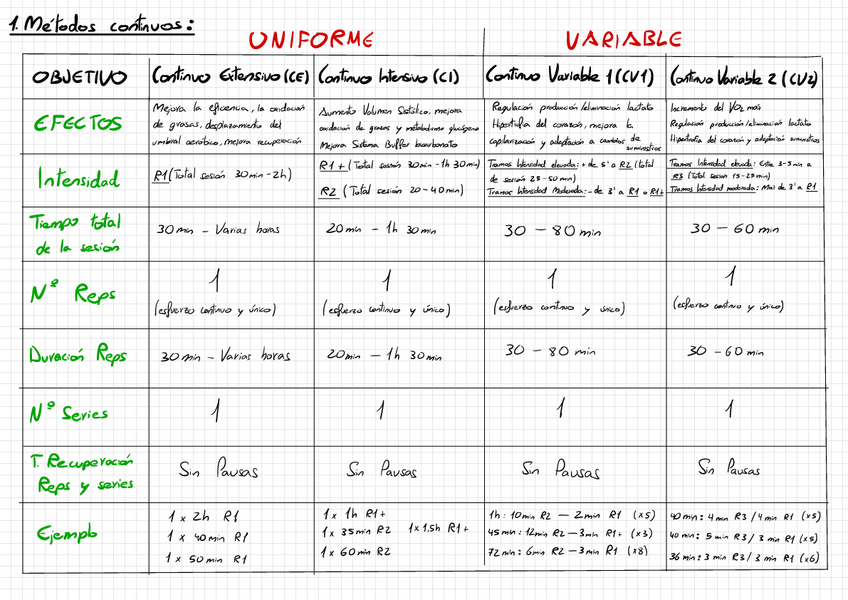 1. Métodos continuos:
UNIFORME
VARIABLE
OBJETIVO
Continuo Extensivo (CE)
Continuo Intensivo (CI)
Continuo Variable 1 (CV1)
Continuo Variable 2 (CV2)
EFECTOS
Mejora la eficiencia, la oxidación
de grasas, desplazamiento del
umbral aeróbico, mejora recuperación
Aumento Volumen Sistólico, mejora
oxidación de grasas y metabolismo glucógeno
Mejora Sistema Buffer bicarbonato
Regulación producción/eliminación lactato
Hipertrofia del corazón, mejora la
capilarización y adaptación a cambios de
suministros
Incremento del VO2 máx
Regulación producción/eliminación lactato
Hipertrofia del corazón y adaptación suministros
Intensidad
R1 (Total sesión 30min-2h)
R1+ (Total sesión 30min-1h 30min)
R2 (Total sesión 20-40min)
Tramos Intensidad elevada: + de 5' a R2 (total
de sesión 25-50min)
Tramos Intensidad Moderada: - de 3' a R1 o R1+
Tramos Intensidad elevada: Entre 3-5min a
R3 (Total sesión 15-25min)
Tramos Intensidad moderada: Mas de 3' a R1
Tiempo total
de la sesión
30min - Varias horas
20min - 1h 30min
30 - 80min
30 - 60 min
Nº Reps
1
(esfuerzo continuo y único)
1
(esfuerzo continuo y único)
1
(esfuerzo continuo y único)
1
(esfuerzo continuo y único)
Duración Reps
30min - Varias horas
20min - 1h 30min
30 - 80 min
30 - 60min
Nº Series
1
1
1
1
T. Recuperación
Reps y series
Sin Pausas
Sin Pausas
Sin Pausas
Sin Pausas
Ejemplo
1 x 2h R1
1 x 40min R1
1 x 50min R1
1 x 1h R1+
1 x 35min R2 1x 1.5h R1+
1 x 60min R2
1h: 10min R2 - 2min R1 (x5)
45min: 12min R2 - 3min R1+ (x3)
72min: 6min R2 - 3min R1 (x8)
40min: 4min R3 / 4min R1 (x5)
40min: 5min R3 / 3min R1 (x5)
36min: 3min R3 / 3min R1 (x6)